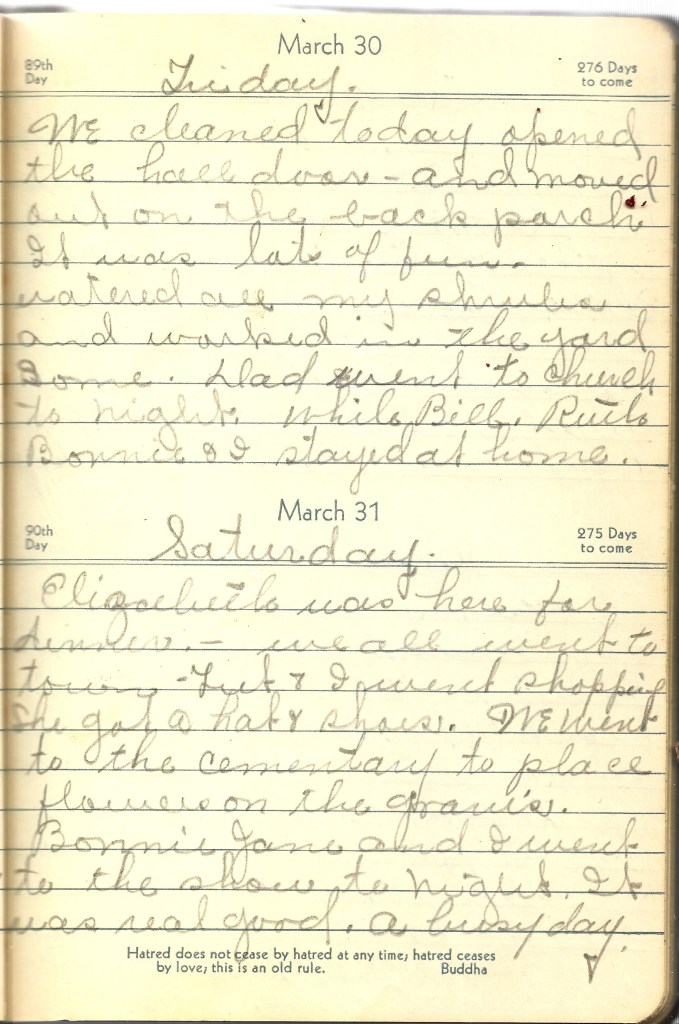 March 30
89th Day
276 Days to come
Friday.
We cleaned today opened
the hall door - and moved
out on the back porch
It was lots of fun.
watered all my shrubs
and worked in the yard
some. Dad went to church
to night. while Bill, Ruth
Bonnie & I stayed at home.
March 31
90th Day
275 Days to come
Saturday.
Elizabeth was here for
dinner. - we all went to
town - & I went shopping
She got a hat & shoes. We went
to the cementary to place
flowers on the graves.
Bonnie Jane and I went
to the show to night. It
was real good. A busy day.
Hatred does not cease by hatred at any time; hatred ceases
by love; this is an old rule. Buddha